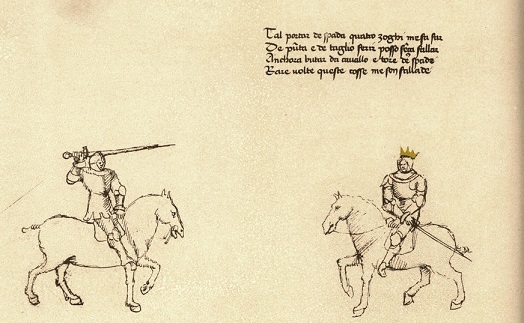 Tal portar de spada quatro zoghi me fa far
De pūta e de taglio ferir posso sēça fallar
Anchora butar da cavallo e tore de spade
Rare volte queste cosse me son fallade